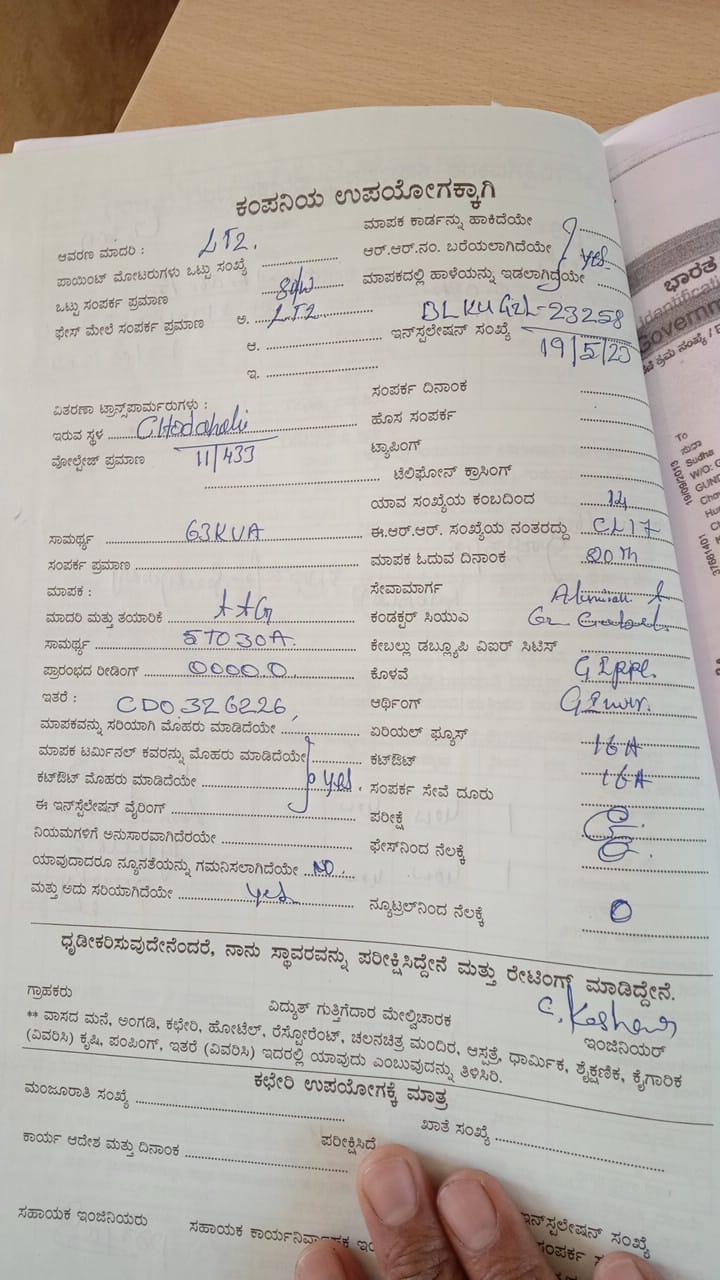 ಕಂಪನಿಯ ಉಪಯೋಗಕ್ಕಾಗಿ
ಆವರಣ ಮಾದರಿ : LT2.
ಪಾಯಿಂಟ್ ಮೋಟರುಗಳು ಒಟ್ಟು ಸಂಖ್ಯೆ
ಒಟ್ಟು ಸಂಪರ್ಕ ಪ್ರಮಾಣ
ಫೇಸ್ ಮೇಲೆ ಸಂಪರ್ಕ ಪ್ರಮಾಣ ಅ. LT2
ಆ.
ಇ.
ಮಾಪಕ ಕಾರ್ಡನ್ನು ಹಾಕಿದೆಯೇ
ಆರ್.ಆರ್.ನಂ. ಬರೆಯಲಾಗಿದೆಯೇ yes.
ಮಾಪಕದಲ್ಲಿ ಹಾಳೆಯನ್ನು ಇಡಲಾಗಿದೆಯೇ
ಇನ್‌ಸ್ಪಲೇಷನ್ ಸಂಖ್ಯೆ BLKUG2L-23258
19/5/23
ವಿತರಣಾ ಟ್ರಾನ್ಸ್‌ಪಾರ್ಮರುಗಳು :
ಇರುವ ಸ್ಥಳ
ವೋಲ್ಟೇಜ್ ಪ್ರಮಾಣ 11/433
ಸಾಮರ್ಥ್ಯ 63KVA
ಸಂಪರ್ಕ ಪ್ರಮಾಣ
ಮಾಪಕ :
ಮಾದರಿ ಮತ್ತು ತಯಾರಿಕೆ
ಸಾಮರ್ಥ್ಯ 5TO30A.
ಪ್ರಾರಂಭದ ರೀಡಿಂಗ್ 0000.0
ಇತರೆ : CD0326226,
ಮಾಪಕವನ್ನು ಸರಿಯಾಗಿ ಮೊಹರು ಮಾಡಿದೆಯೇ
ಮಾಪಕ ಟರ್ಮಿನಲ್ ಕವರನ್ನು ಮೊಹರು ಮಾಡಿದೆಯೇ
ಕಟ್‌ಔಟ್ ಮೊಹರು ಮಾಡಿದೆಯೇ yes.
ಈ ಇನ್‌ಸ್ಟಲೇಷನ್ ವೈರಿಂಗ್
ನಿಯಮಗಳಿಗೆ ಅನುಸಾರವಾಗಿದೆರಯೇ
ಯಾವುದಾದರೂ ನ್ಯೂನತೆಯನ್ನು ಗಮನಿಸಲಾಗಿದೆಯೇ NO.
ಮತ್ತು ಅದು ಸರಿಯಾಗಿದೆಯೇ yes
ಸಂಪರ್ಕ ದಿನಾಂಕ
ಹೊಸ ಸಂಪರ್ಕ
ಟ್ಯಾಪಿಂಗ್
ಟೆಲಿಫೋನ್ ಕ್ರಾಸಿಂಗ್
ಯಾವ ಸಂಖ್ಯೆಯ ಕಂಬದಿಂದ 14
ಈ.ಆರ್.ಆರ್. ಸಂಖ್ಯೆಯ ನಂತರದ್ದು CL17
ಮಾಪಕ ಓದುವ ದಿನಾಂಕ 20th
ಸೇವಾಮಾರ್ಗ
ಕಂಡಕ್ಟರ್ ಸಿಯುಎ
ಕೇಬಲ್ಲು ಡಬ್ಲ್ಯೂಪಿ ವಿಐರ್ ಸಿಟಿಸ್
ಕೊಳವೆ
ಆರ್ಥಿಂಗ್
ಏರಿಯಲ್ ಫ್ಯೂಸ್ 16A
ಕಟ್‌ಔಟ್ 16A
ಸಂಪರ್ಕ ಸೇವೆ ದೂರು
ಪರೀಕ್ಷೆ
ಫೇಸ್‌ನಿಂದ ನೆಲಕ್ಕೆ
ನ್ಯೂಟ್ರಲ್‌ನಿಂದ ನೆಲಕ್ಕೆ 0
ಧೃಡೀಕರಿಸುವುದೇನೆಂದರೆ, ನಾನು ಸ್ಥಾವರವನ್ನು ಪರೀಕ್ಷಿಸಿದ್ದೇನೆ ಮತ್ತು ರೇಟಿಂಗ್ ಮಾಡಿದ್ದೇನೆ.
ಗ್ರಾಹಕರು ವಿದ್ಯುತ್ ಗುತ್ತಿಗೆದಾರ ಮೇಲ್ವಿಚಾರಕ ಇಂಜಿನಿಯರ್
** ವಾಸದ ಮನೆ, ಅಂಗಡಿ, ಕಛೇರಿ, ಹೋಟೆಲ್, ರೆಸ್ಟೋರೆಂಟ್, ಚಲನಚಿತ್ರ ಮಂದಿರ, ಆಸ್ಪತ್ರೆ, ಧಾರ್ಮಿಕ, ಶೈಕ್ಷಣಿಕ, ಕೈಗಾರಿಕ
(ವಿವರಿಸಿ) ಕೃಷಿ, ಪಂಪಿಂಗ್, ಇತರೆ (ವಿವರಿಸಿ) ಇದರಲ್ಲಿ ಯಾವುದು ಎಂಬುವುದನ್ನು ತಿಳಿಸಿರಿ.
ಕಛೇರಿ ಉಪಯೋಗಕ್ಕೆ ಮಾತ್ರ
ಮಂಜೂರಾತಿ ಸಂಖ್ಯೆ
ಖಾತೆ ಸಂಖ್ಯೆ
ಕಾರ್ಯ ಆದೇಶ ಮತ್ತು ದಿನಾಂಕ
ಪರೀಕ್ಷಿಸಿದೆ
ಸಹಾಯಕ ಇಂಜಿನಿಯರು
ಸಹಾಯಕ
ಸಂಖ್ಯೆ
ಭಾರತ
To
Sudha